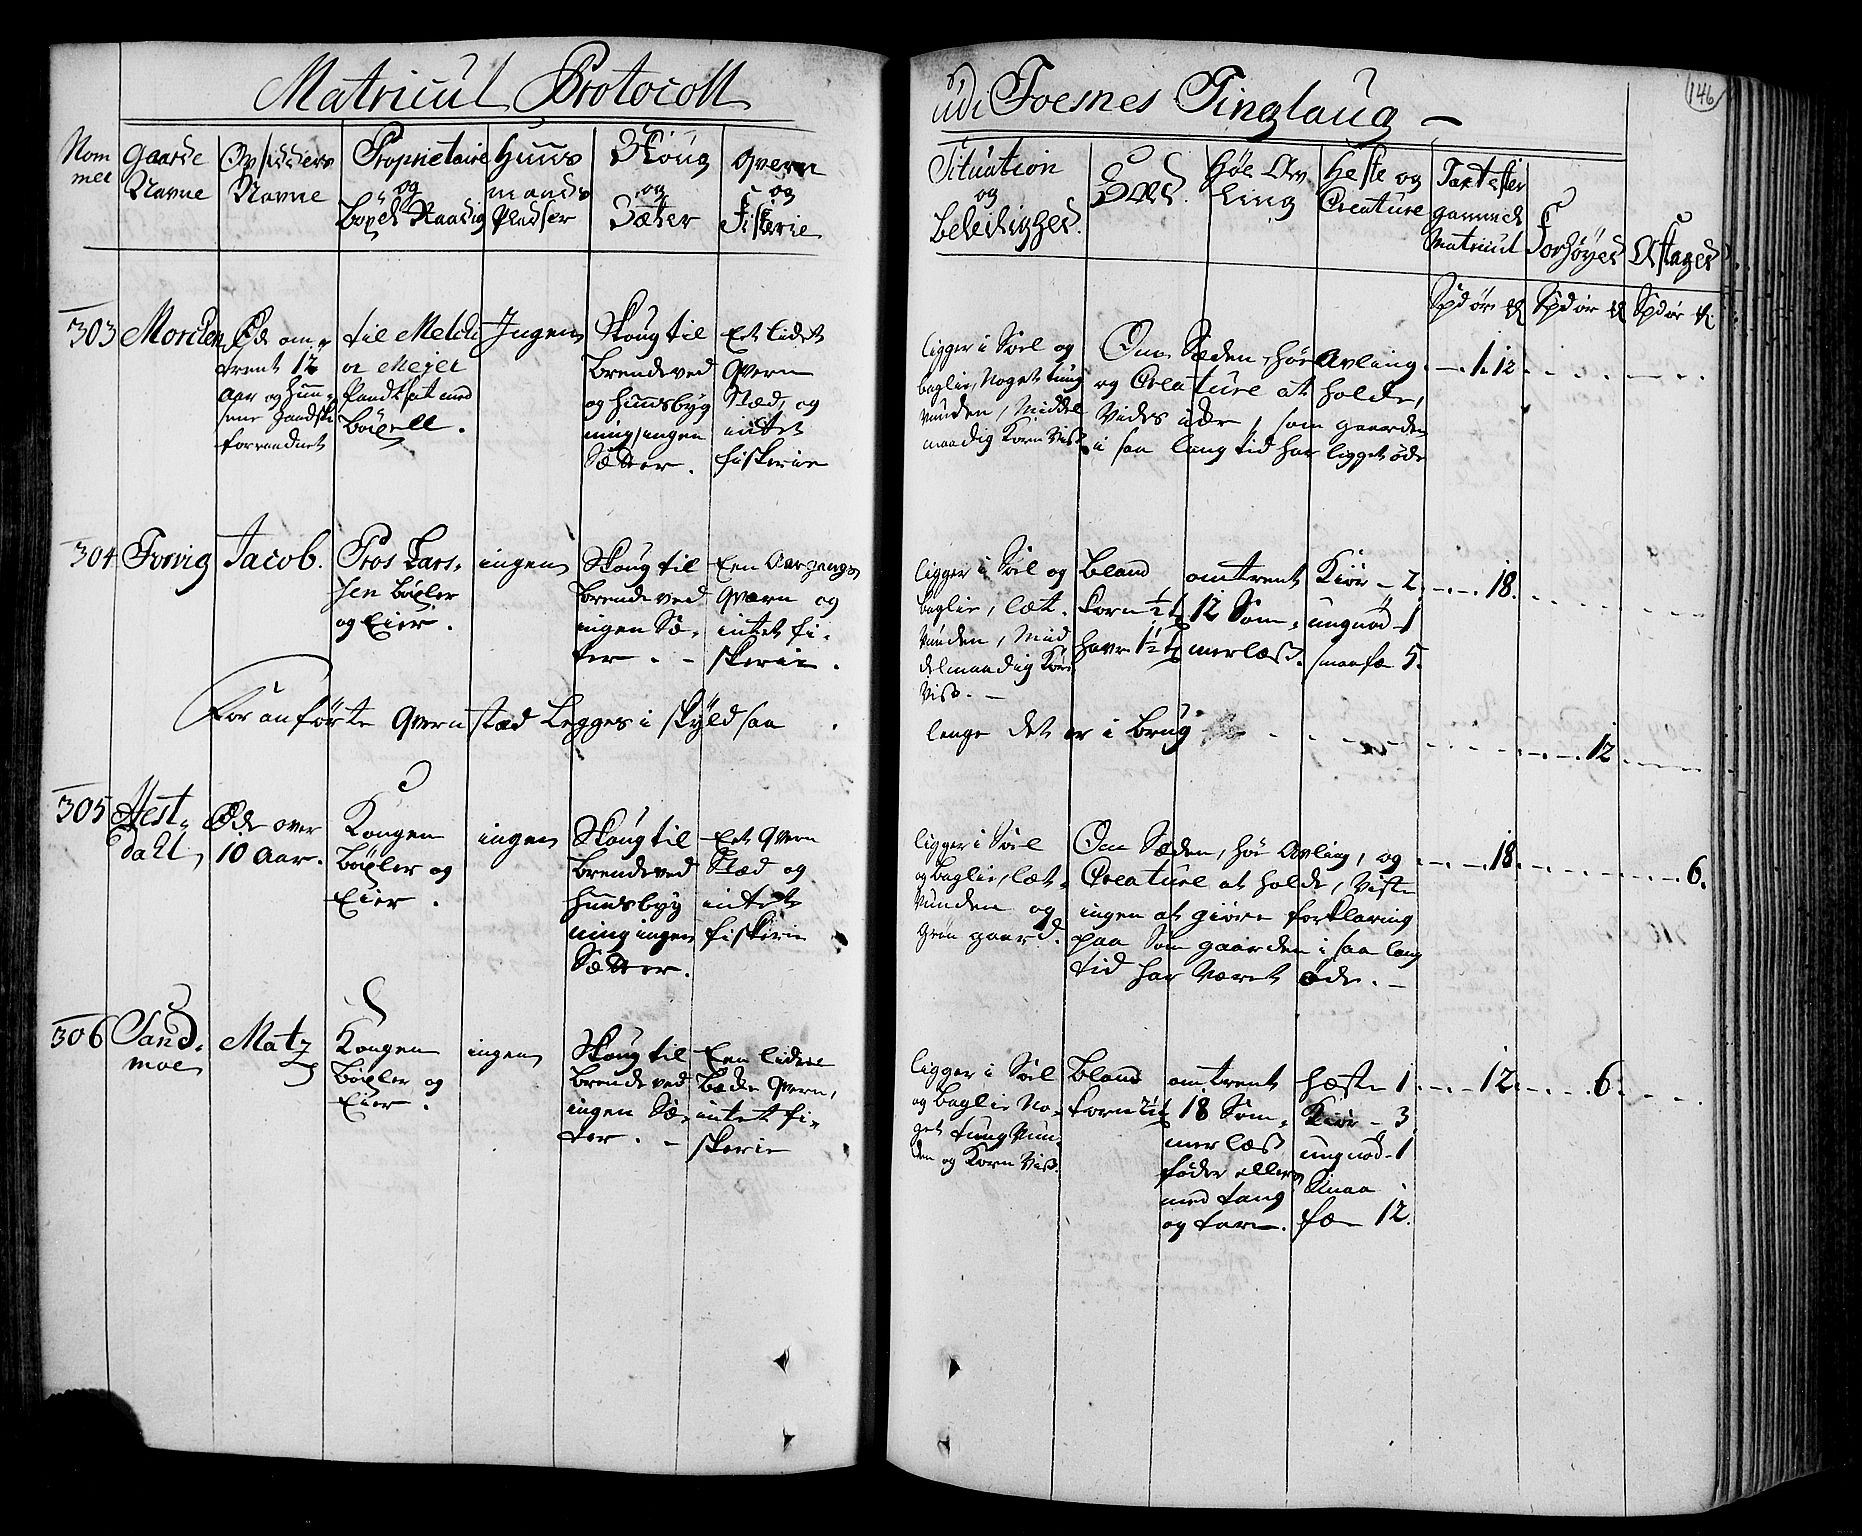 Matricul Protocoll
udi Foesnes Tinglaug
146
Nom
mer
Gaarde
Navne
Opsidders
Navne
Proprietaire
og
Boxel Raadig
Huus
mands
Pladser
Skoug
og
Sæter
Qvern
og
Fiskerie
Situation
og
Beleilighed.
Sæd.
Høe Av
ling
Heste og
Creature
Taxt efter
gammel
Matricul
Forhøyed
Aftaged
Spd ør
Spd ør
Spd ør
303
Morcken
Øde om,
trent 12
Aar og Huu,
sene gandske
forraadnet
til Melchi
or Mejer
Pandtsat med
böxell.
Ingen
Skoug til
brendeved
og huusbyg
ning, ingen
Sætter.
Et lidet
Qvern
Stæd, og
intet
fiskerie
ligger i Soel og
baglie, Noget tung
vunden, Middel
maadig Korn Viss.
Om Sæden, Høe Avling
og Creature at holde,
Vides icke, som gaarden
i saa lang tid har ligget øde
1. 12
304
Forvig
Jacob.
Pros Lars,
sen böxler
og Eier.
ingen
Skoug til
brendeved
ingen Sæ,
ter. -
Een Aargangs
Qværn og
intet fi,
skerie.
ligger i Soel og
baglie, læt,
vunden, Mid
delmaadig Korn
Viss. -
bland
korn 1/2 t
havre 1 1/2 t
omtrent
12 Som,
merlæss.
Kiør - 2.
ungnød - 1
smaafæ 5.
18.
For anførte Qvernstæd Legges i skyld saa
lenge det er i brug
12
305
Hest,
dahl
Øde over
10 Aar.
Kongen
böxler og
Eier.
ingen
Skoug til
brendeved
huusbyg
ning ingen
Sætter.
Eet Qvern
Stæd og
intet
fiskerie
ligger i Soel
og baglie, læt,
vunden og
Grøn gaard.
Om Sæden, høe Avling, og
Creature at holde, Viste
ingen at giøre forklaring
paa Som gaarden i saa lang
tid har Været øde. -
18.
6.
306
Sand,
moe
Matz
Kongen
böxler og
Eier.
ingen
Skoug til
brendeved
ingen Sæ,
ter. -
Een liden
bæcke Qvern,
intet fi,
skerie
ligger i Soel
og baglie No,
get tung Vun,
den og Korn Viss.
bland
korn 2 1/2 t
omtrent
18 Som,
merlæss
foder ellers
med tang
og tare.
hæste 1
Kiør - 3
ungnød - 1
Smaa
fæ 12.
12.
6.